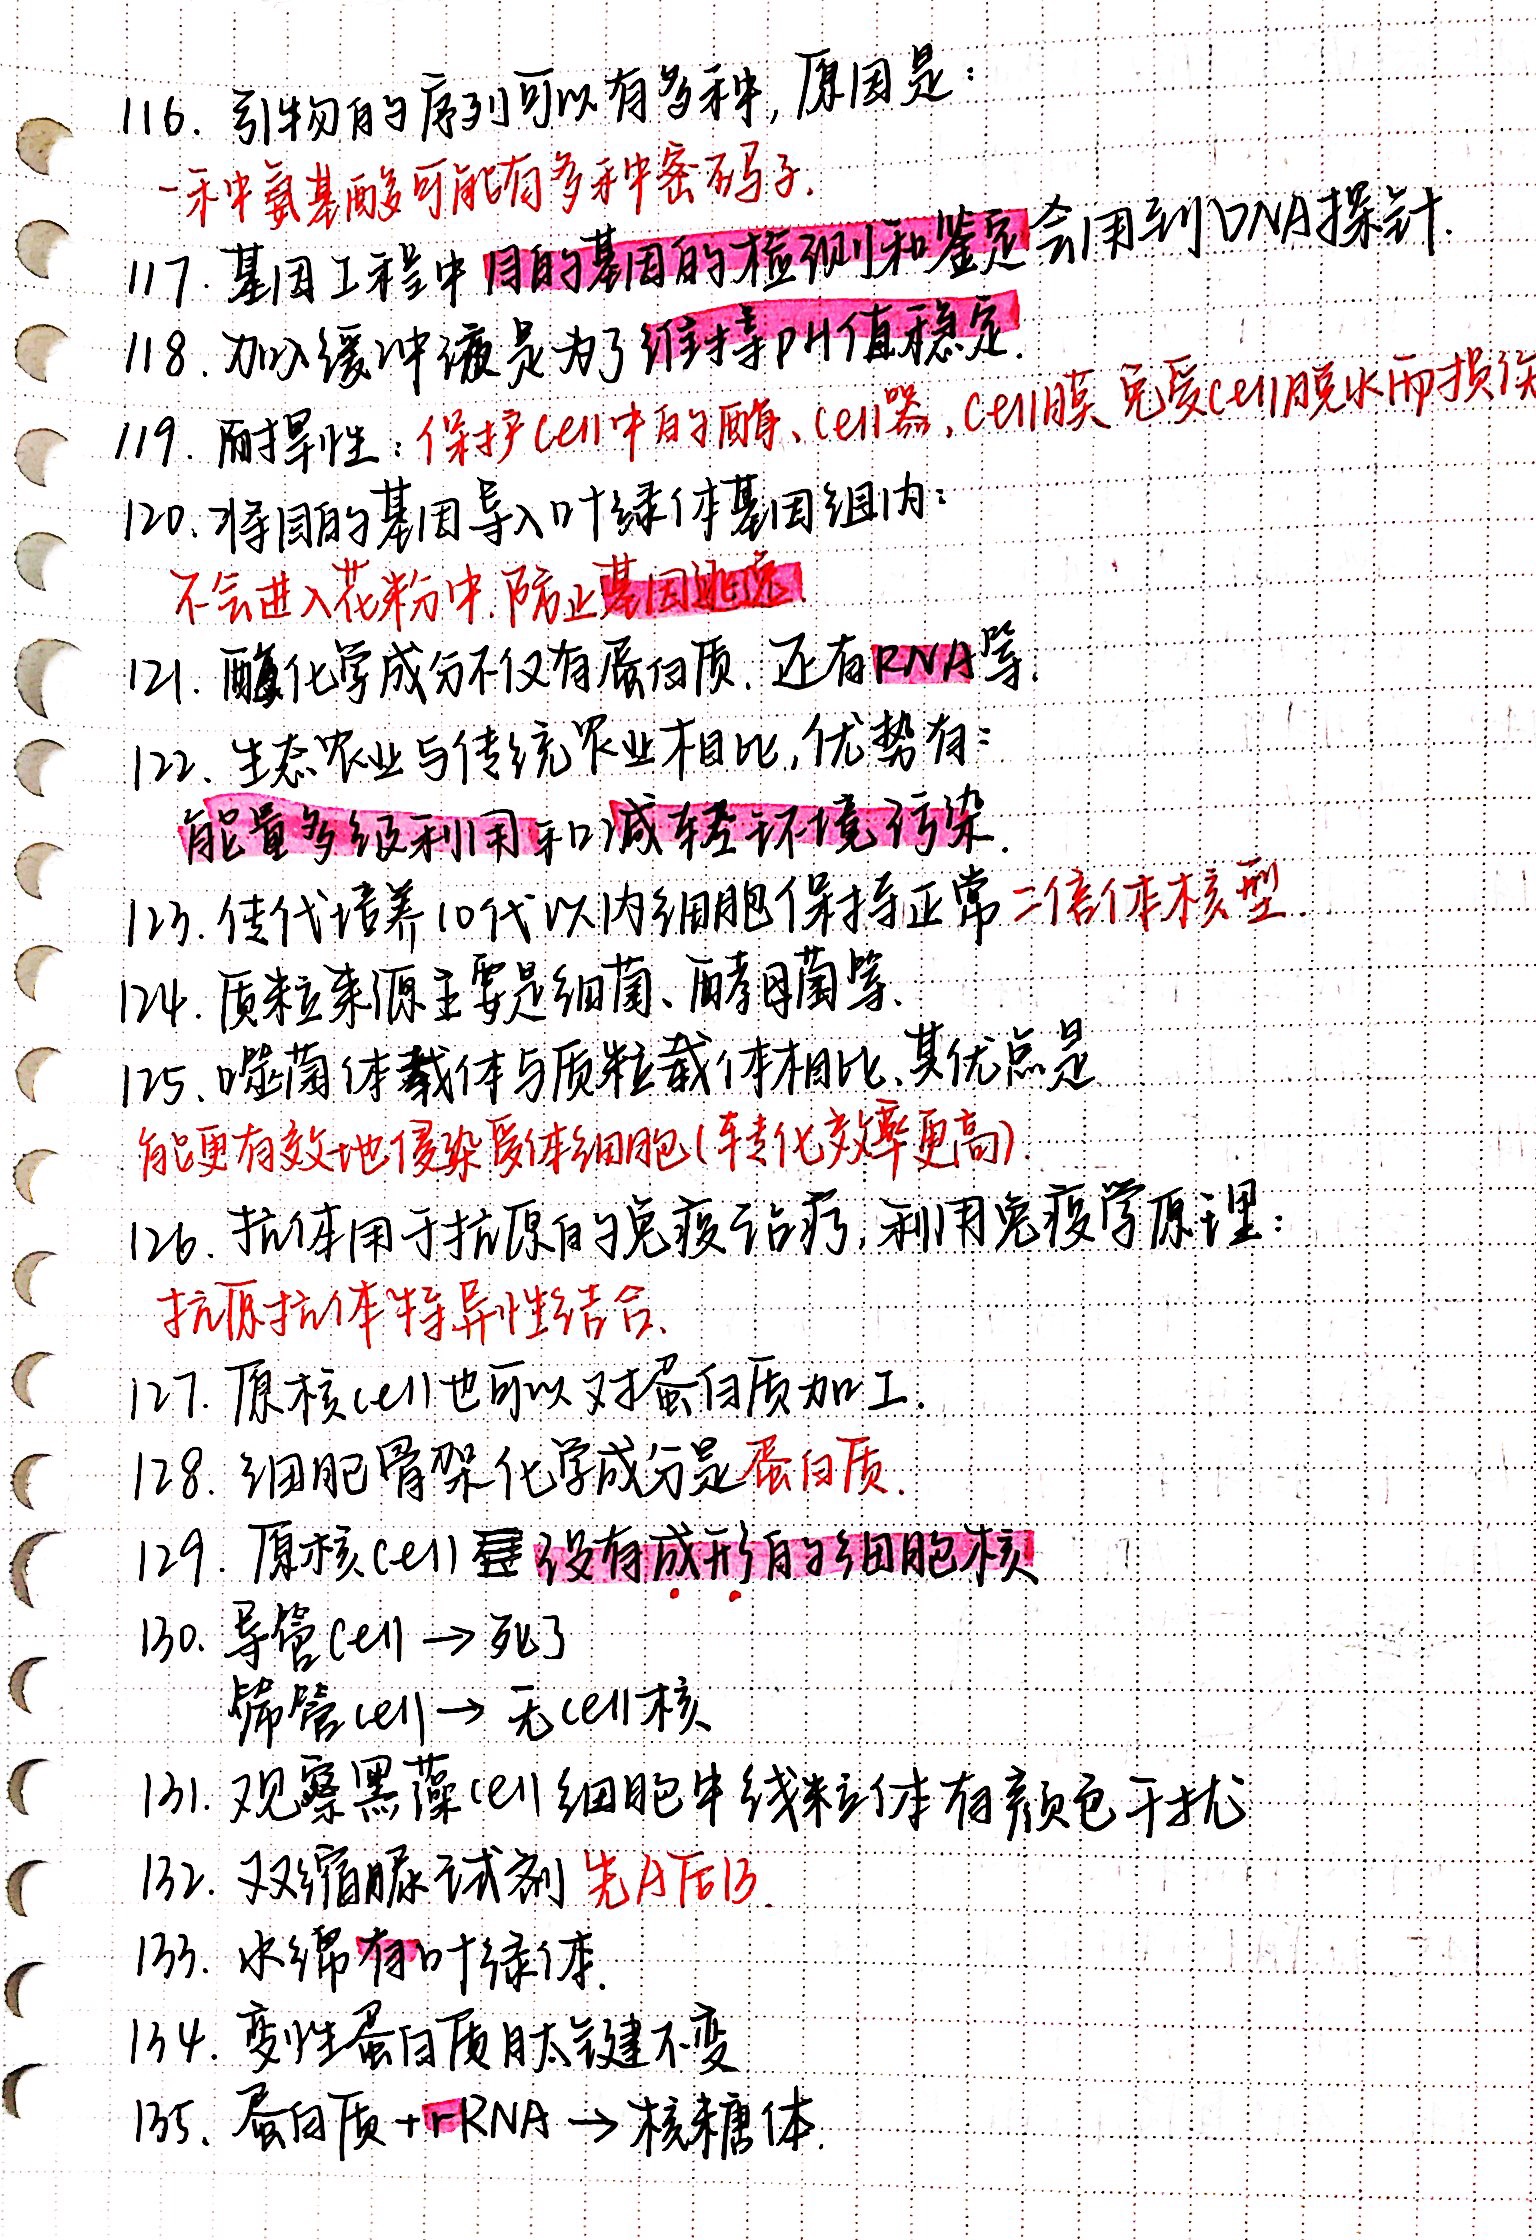 116. 引物的序列可以有多种,原因是:
一种氨基酸可能有多种密码子.
117. 基因工程中目的基因的检测和鉴定会用到DNA探针.
118. 加入缓冲液是为了维持pH值稳定.
119. 耐旱性:保护cell中的酶、cell器、cell膜免受cell脱水而损伤
120. 将目的基因导入叶绿体基因组内:
不会进入花粉中.防止基因逃逸.
121. 酶化学成分不仅有蛋白质.还有RNA等.
122. 生态农业与传统农业相比,优势有:
能量多级利用和减轻环境污染.
123. 传代培养10代以内细胞保持正常二倍体核型.
124. 质粒来源主要是细菌、酵母菌等.
125. 噬菌体载体与质粒载体相比、其优点是
能更有效地侵染受体细胞(转化效率更高).
126. 抗体用于抗原的免疫治疗,利用免疫学原理:
抗原抗体特异性结合.
127. 原核cell也可以对蛋白质加工.
128. 细胞骨架化学成分是蛋白质.
129. 原核cell 没有成形的细胞核
130. 导管cell→死了
筛管cell→无cell核
131. 观察黑藻cell细胞中线粒体有颜色干扰
132. 双缩脲试剂 先A后B.
133. 水绵有叶绿体.
134. 变性蛋白质肽键不变
135. 蛋白质+rRNA→核糖体.